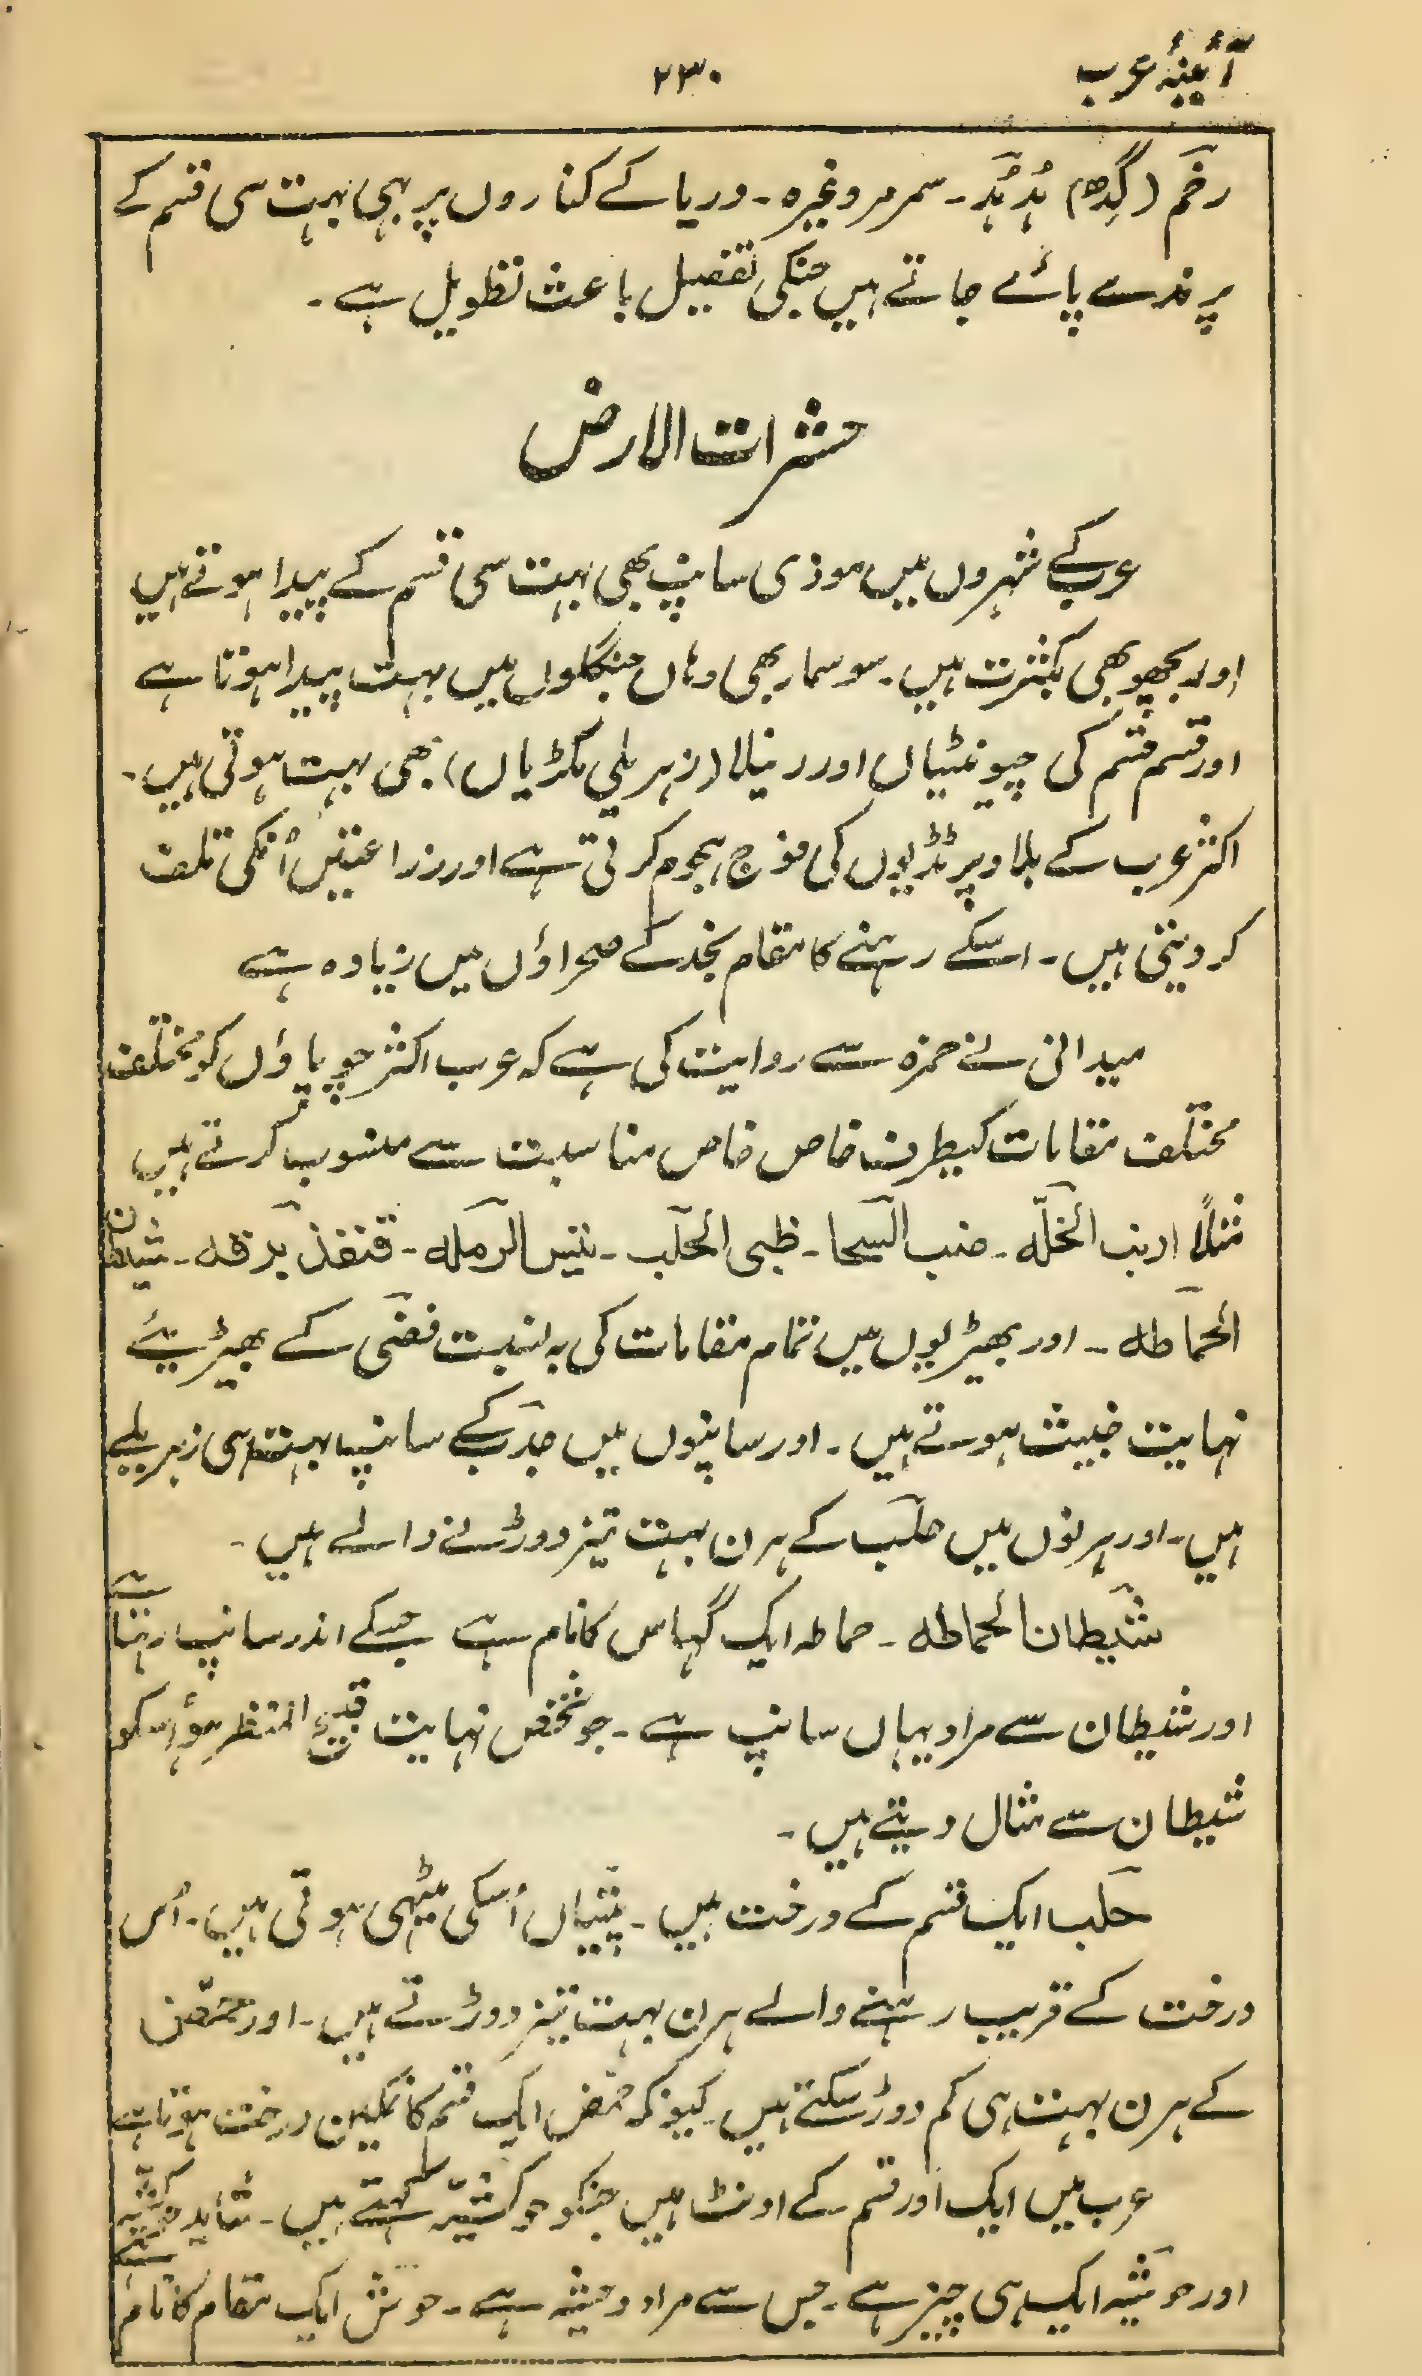 آئینۂ عرب
۲۳۰
رخَم (گِدھ) ہُدہُد۔ سمرمر وغیرہ۔ دریا کے کناروں پر بہی بہت سی قسم کے
پرندے پائے جاتے ہیں جنکی تفصیل باعث تطویل ہے۔
حشرات الارض
عرب کے شہروں میں موذی سانپ بھی بہت سی قسم کے پیدا ہوتے ہیں
اور بچھو بھی بکثرت ہیں۔ سوسمار بھی وہاں جنگلوں میں بہت پیدا ہوتا ہے
اور قسم قسم کی چیونٹیاں اور رتیلا (زہریلی مکڑیاں) بھی بہت ہوتی ہیں۔
اکثر عرب کے بلاد پر ٹڈیوں کی فوج ہجوم کرتی ہے اور زراعتیں اُنکی تلف
کر دیتی ہیں۔ اسکے رہنے کا مقام نجد کے صحراؤں میں زیادہ ہے
میدانی نے حمزہ سے روایت کی ہے کہ عرب اکثر چوپاؤں کو مختلف
مختلف مقامات کیطرف خاص خاص مناسبت سے منسوب کرتے ہیں
مثلاً ارنب الخلّہ۔ ضب السحا۔ ظبی الحلَب۔ تیس الرملہ۔ قنفذ بَرقہ۔ شیطان
الحماطہ۔ اور بھیڑیوں میں تمام مقامات کی بہ نسبت غضی کے بھیڑیئے
نہایت خبیث ہوتے ہیں۔ اور سانپوں میں جدَب کے سانپ بہت ہی زہریلے
ہیں۔ اور ہرنوں میں حلَب کے ہرن بہت تیز دوڑنے والے ہیں۔
شیطان الحماطہ۔ حماطہ ایک گہاس کا نام ہے جسکے اندر سانپ رہتا ہے
اور شیطان سے مراد یہاں سانپ ہے۔ جو شخص نہایت قبیح المنظر ہو اُسکو
شیطان سے مثال دیتے ہیں۔
حلَب ایک قسم کے درخت ہیں۔ پتّیاں اُسکی میٹہی ہوتی ہیں۔ اُس
درخت کے قریب رہنے والے ہرن بہت تیز دوڑتے ہیں۔ اور حمَض
کے ہرن بہت ہی کم دوڑ سکتے ہیں۔ کیونکہ حمَض ایک قسم کا نمکین درخت ہوتا ہے
عرب میں ایک اور قسم کے اونٹ ہیں جنکو حوَشیّہ کہتے ہیں۔ شاید
اور حوشیہ ایک ہی چیز ہے۔ جس سے مراد وحشیہ ہے۔ حوش ایک مقام کا نام ہے